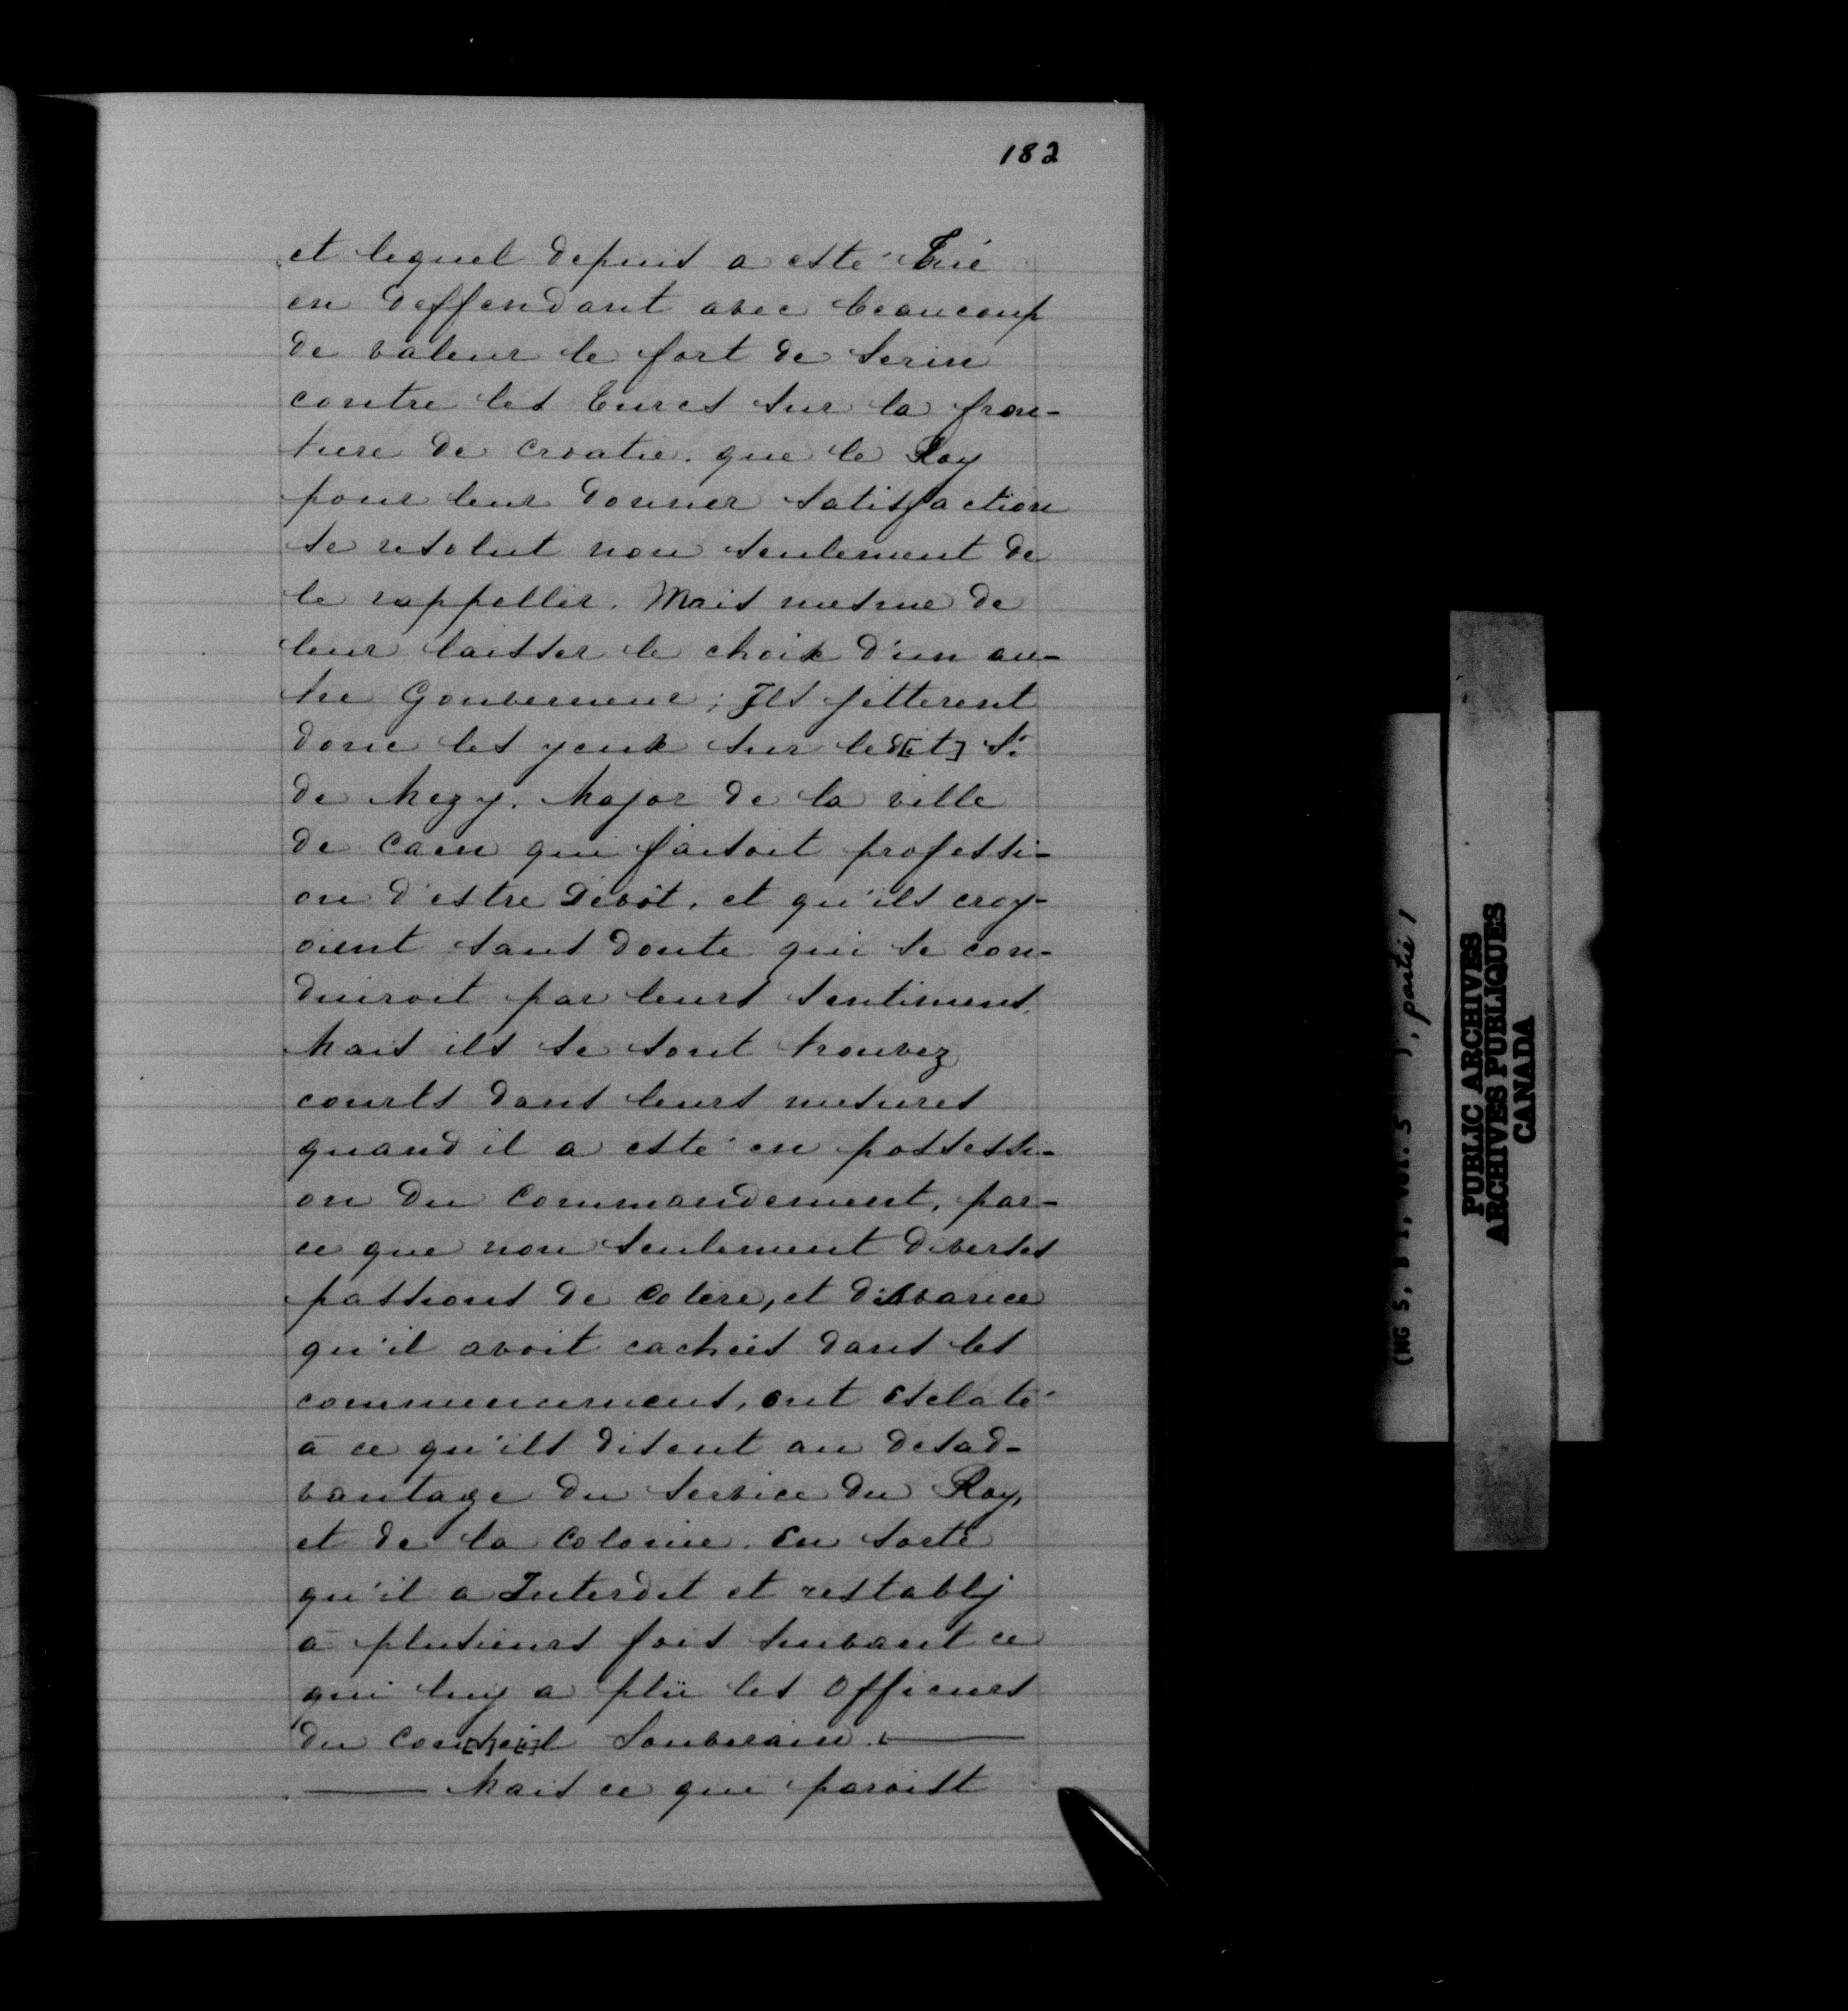 182
et lequel depuis a esté Tué
en deffendant avec beaucoup
de valeur le fort de Serin
contre les Turcs sur la fron-
tiere de Croatie. que le Roy
pour leur donner satisfaction
se resolut non seulement de
le rappeller. Mais mesme de
leur laisser le choix d'un au-
tre Gouverneur; Ils jetterent
donc les yeux sur led[it] Sr.
de Mezy. Major de la ville
de Caen qui faisoit professi-
on d'estre Devôt, et qu'ils croy-
oient sans doute qui se con-
duiroit par leurs sentimens.
Mais ils se sont trouvez
courts dans leurs mesures
quand il a esté en possessi-
on du Commandement, par-
ce que non seulement diverses
passions de Colere, et d'Avarice
qu'il avoit cachées dans les
commencemens, ont esclaté
à ce qu'ils disent au desad-
vantage du service du Roy,
et de la Colonie. En sorte
qu'il a Interdit et restably
à plusieurs fois suivant ce
qui luy a plü les Officiers
du Con[s]e[i]l Souverain.
Mais ce qui paroist
(MG 5, B 1, vol. 5 ), partie 1
PUBLIC ARCHIVES
ARCHIVES PUBLIQUES
CANADA